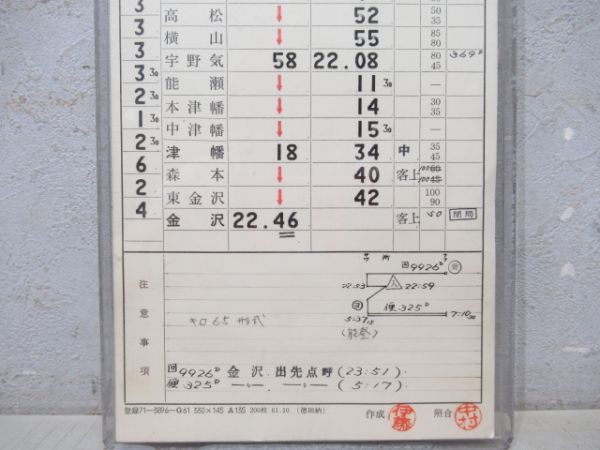 3 高松 ↓ 52 50 35
3 横山 ↓ 55 85 80
3 宇野気 58 22.08 80 45 369D
3 30 能瀬 ↓ 11 30 —
2 30 本津幡 ↓ 14 30 35
1 30 中津幡 ↓ 15 30 —
2 30 津幡 18 34 中 35 45
6 森本 ↓ 40 客上
2 東金沢 ↓ 42 100 90
4 金沢 22.46 客上 50 閉局
注意事項
回9926D
22:53 22:59
便325D
5:37 7:10
(能登)
キロ65形式
回9926D 金沢 出先点呼 (23:51)
便325D 〃 〃 (5:17)
登録71-5896-G61 550×145 A135 200枚 61.10
作成 伊藤 照合 中村